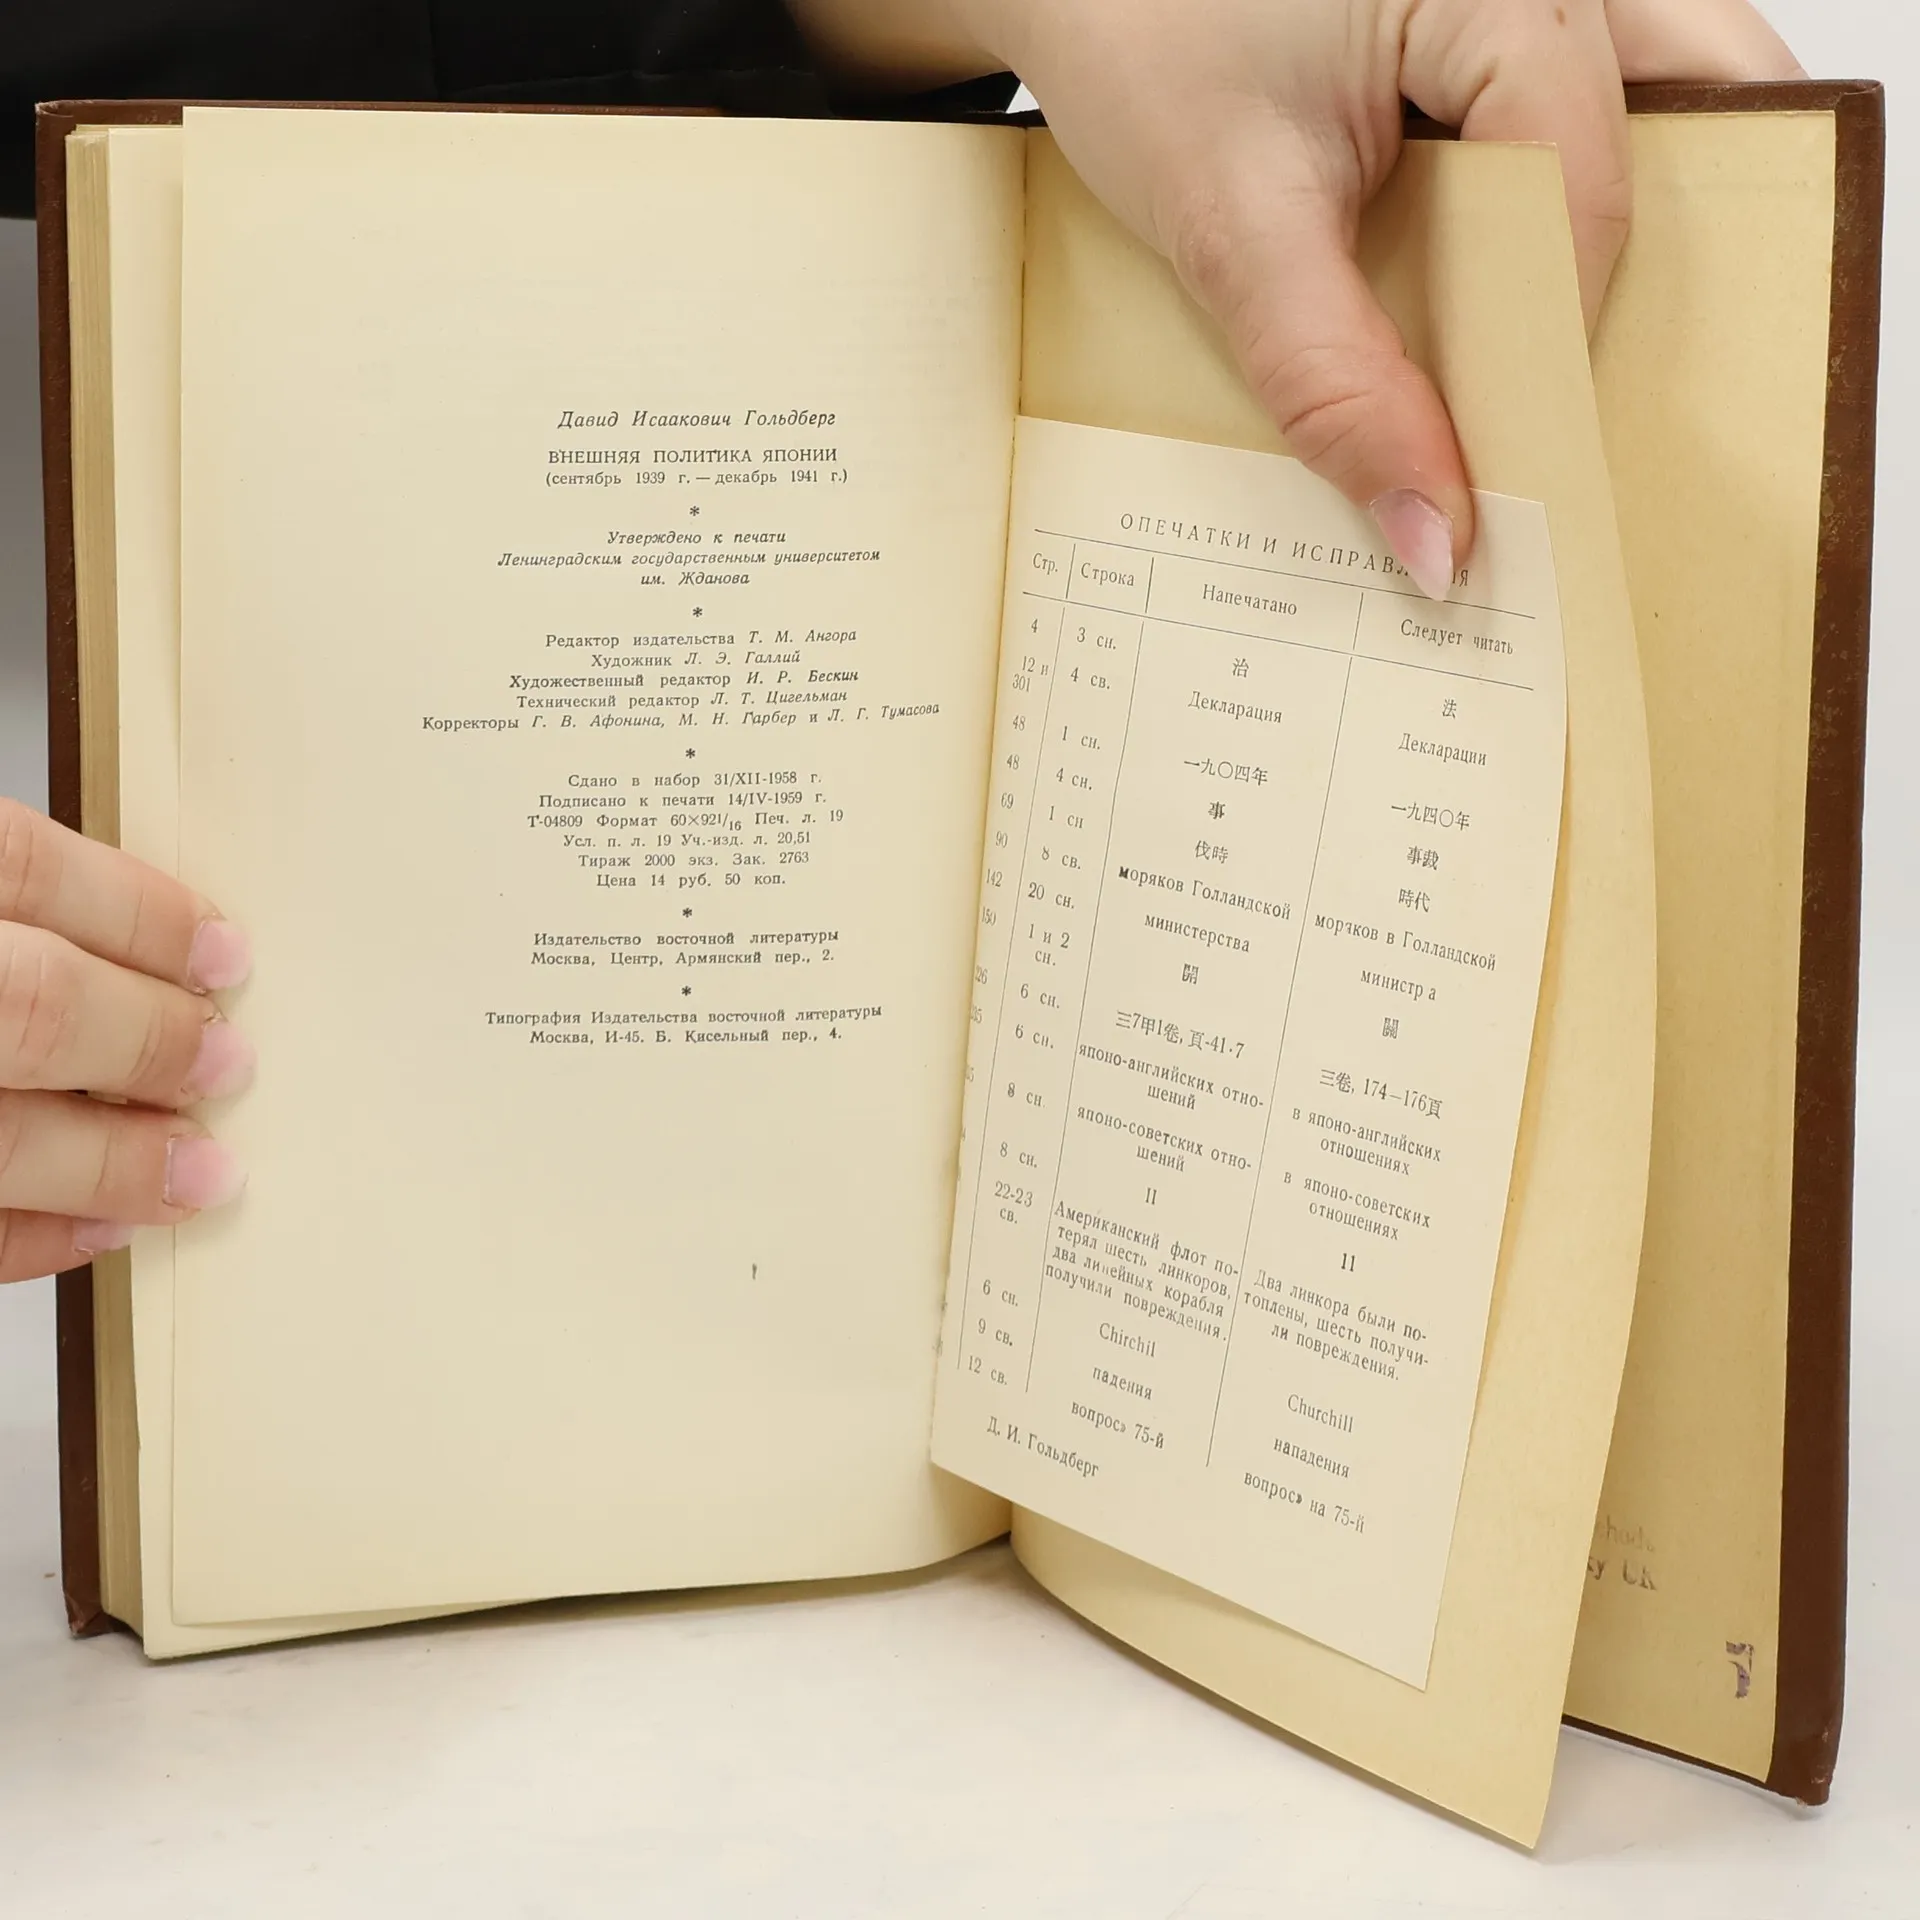 Давид Исаакович Гольдберг
ВНЕШНЯЯ ПОЛИТИКА ЯПОНИИ
(сентябрь 1939 г. — декабрь 1941 г.)
*
Утверждено к печати
Ленинградским государственным университетом
им. Жданова
*
Редактор издательства Т. М. Ангора
Художник Л. Э. Галлий
Художественный редактор И. Р. Бескин
Технический редактор Л. Т. Цигельман
Корректоры Г. В. Афонина, М. Н. Гарбер и Л. Г. Тумасова
*
Сдано в набор 31/XII-1958 г.
Подписано к печати 14/IV-1959 г.
Т-04809 Формат 60×92 1/16 Печ. л. 19
Усл. п. л. 19 Уч.-изд. л. 20,51
Тираж 2000 экз. Зак. 2763
Цена 14 руб. 50 коп.
*
Издательство восточной литературы
Москва, Центр, Армянский пер., 2.
*
Типография Издательства восточной литературы
Москва, И-45. Б. Кисельный пер., 4.
ОПЕЧАТКИ И
Стр. Строка Напечатано Следует читать
4 3 сн. 治 法
12 и 301 4 св. Декларация Декларации
48 1 сн. 一九〇四年 一九四〇年
48 4 сн. 事 事裁
69 1 сн 伐時 時代
90 8 св. моряков Голландской моряков в Голландской
142 20 сн. министерства министр а
150 1 и 2 сн. 開 關
6 сн. 三7甲1卷, 頁-41·7 三卷, 174—176頁
6 сн. японо-английских отно-
шений
в японо-английских
отношениях
8 сн. японо-советских отно-
шений
в японо-советских
отношениях
8 сн. II 11
22-23 св. Американский флот по-
терял шесть линкоров,
два линейных корабля
получили повреждения.
Два линкора были по-
топлены, шесть получи-
ли повреждения.
6 сн. Chirchil Churchill
9 св. падения нападения
12 св. вопрос» 75-й вопрос» на 75-й
Д. И. Гольдберг